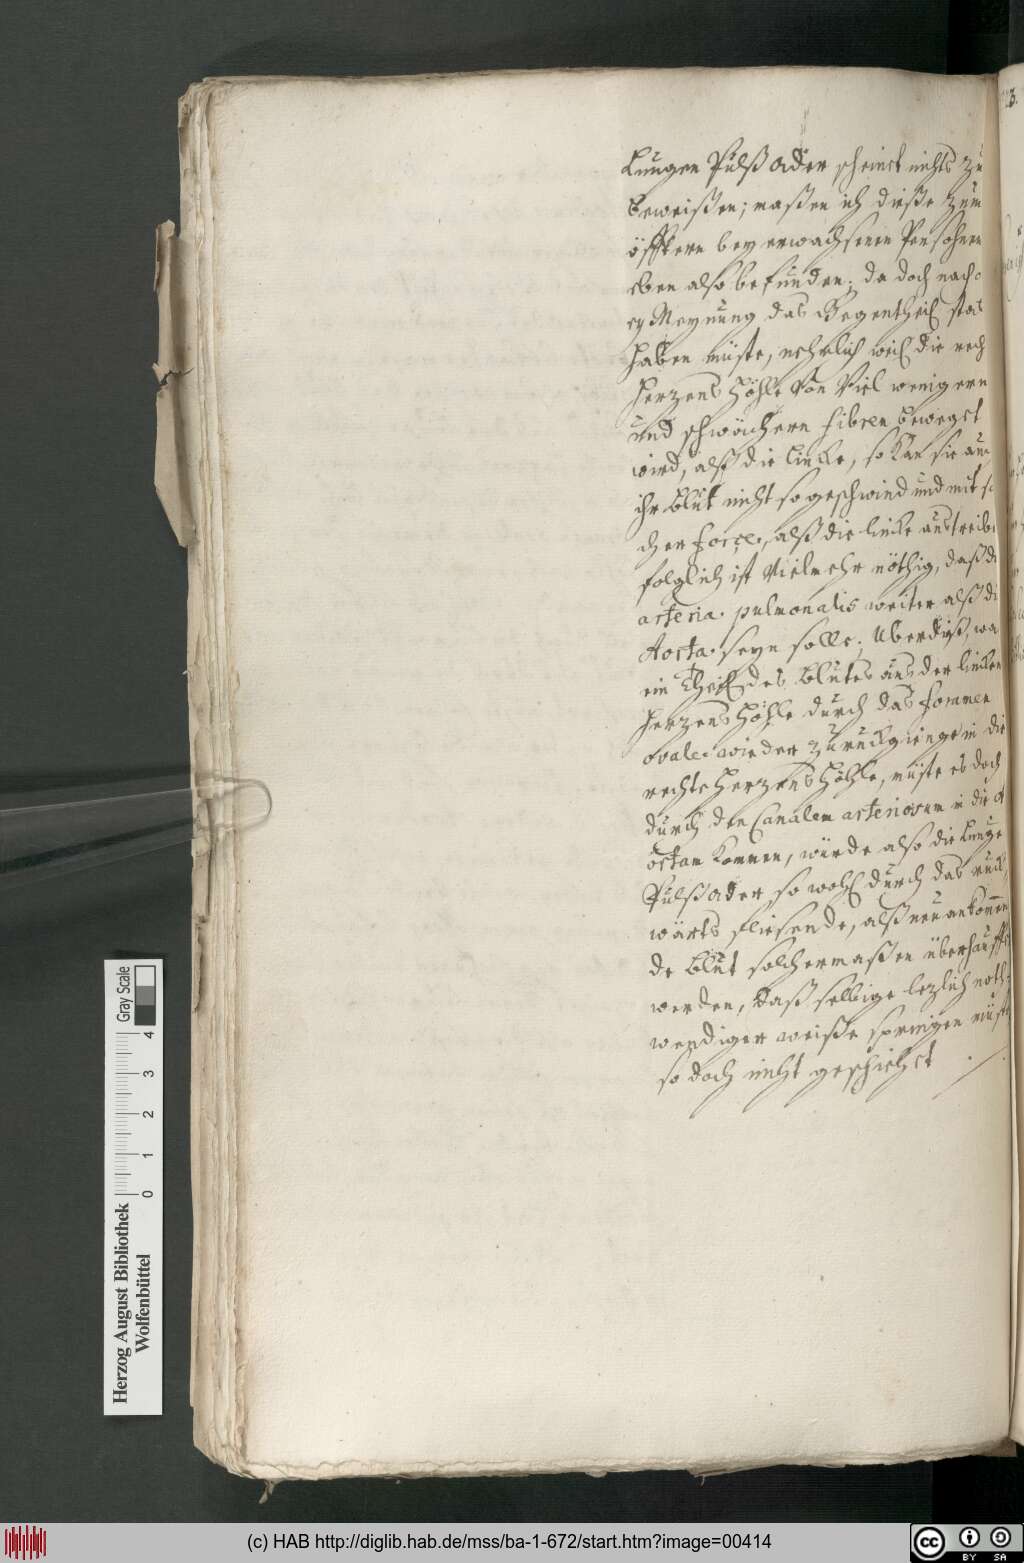 Lungen Pulß Ader scheinet nichts zu
beweißen; maßen ich dieße zum
öfftern bey erwachsenen Persohnen
eben also befunden; da doch nach
Meynung das Gegentheil
haben müste, nehmlich weil die
Herzens Höhle von viel wenigern
und schwächern fibren beweget
wird, alß die lincke, so kan sie auch
ihr Blut nicht so geschwind und mit
cher force, alß die lincke austreiben
folglich ist vielmehr nöthig, daß
arteria pulmonalis weiter alß
Aorta seyn solle; Uberdiß,
ein Theil des Blutes aus der lincken
Herzens Höhle durch das foramen
ovale wieder zuruckgienge in die
rechte Herzens Höhle, müste es doch
durch den Canalem arteriosum in die
ortam kommen, würde also die Lunge
Pulß Ader so wohl durch das ruck
wärts fliesende, alß neu ankommen
de Blut solchermaßen überhaufft
werden, daß selbige lezlich noth
wendiger weiße springen müste
so doch nicht geschiehet
3.
Herzog August Bibliothek
Wolfenbüttel
0 1 2 3 4
Gray Scale
(c) HAB http://diglib.hab.de/mss/ba-1-672/start.htm?image=00414
cc BY SA